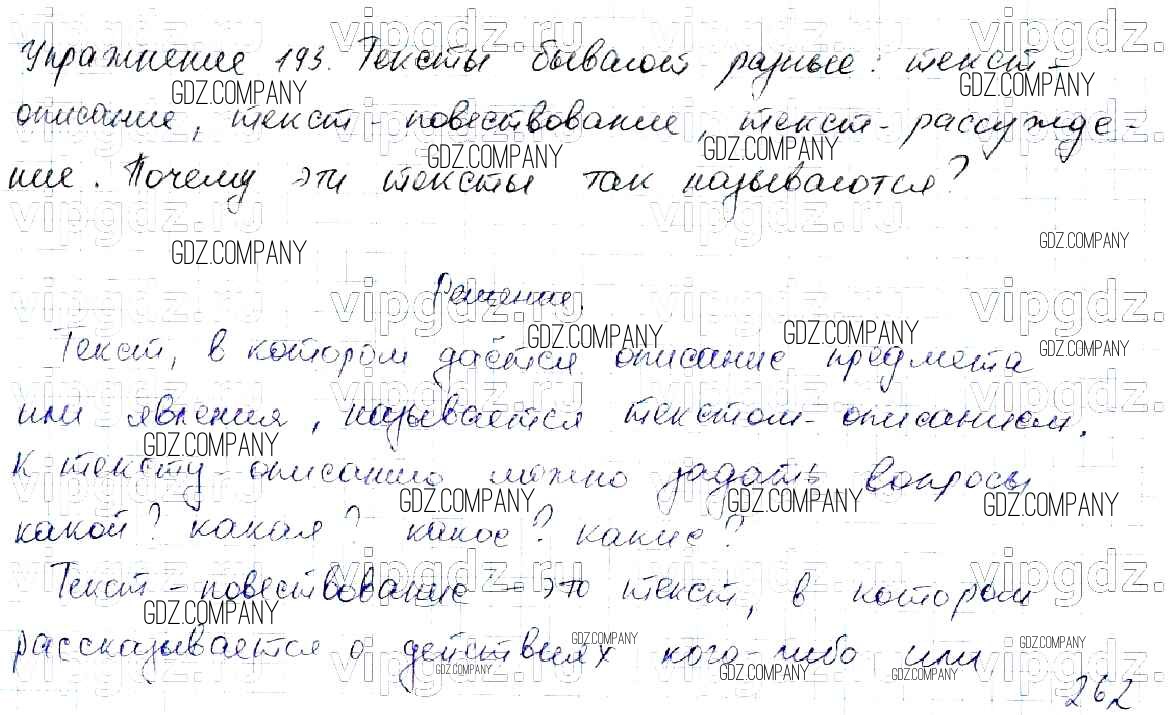 Упражнение 193. Тексты бывают разные: текст-
описание, текст-повествование, текст-рассужде-
ние. Почему эти тексты так называются?
Решение.
Текст, в котором даётся описание предмета
или явления, называется текстом-описанием.
К тексту-описанию можно задать вопросы
какой? какая? какое? какие?
Текст-повествование - это текст, в котором
рассказывается о действиях кого-либо или
262
vipgdz.ru
GDZ.COMPANY